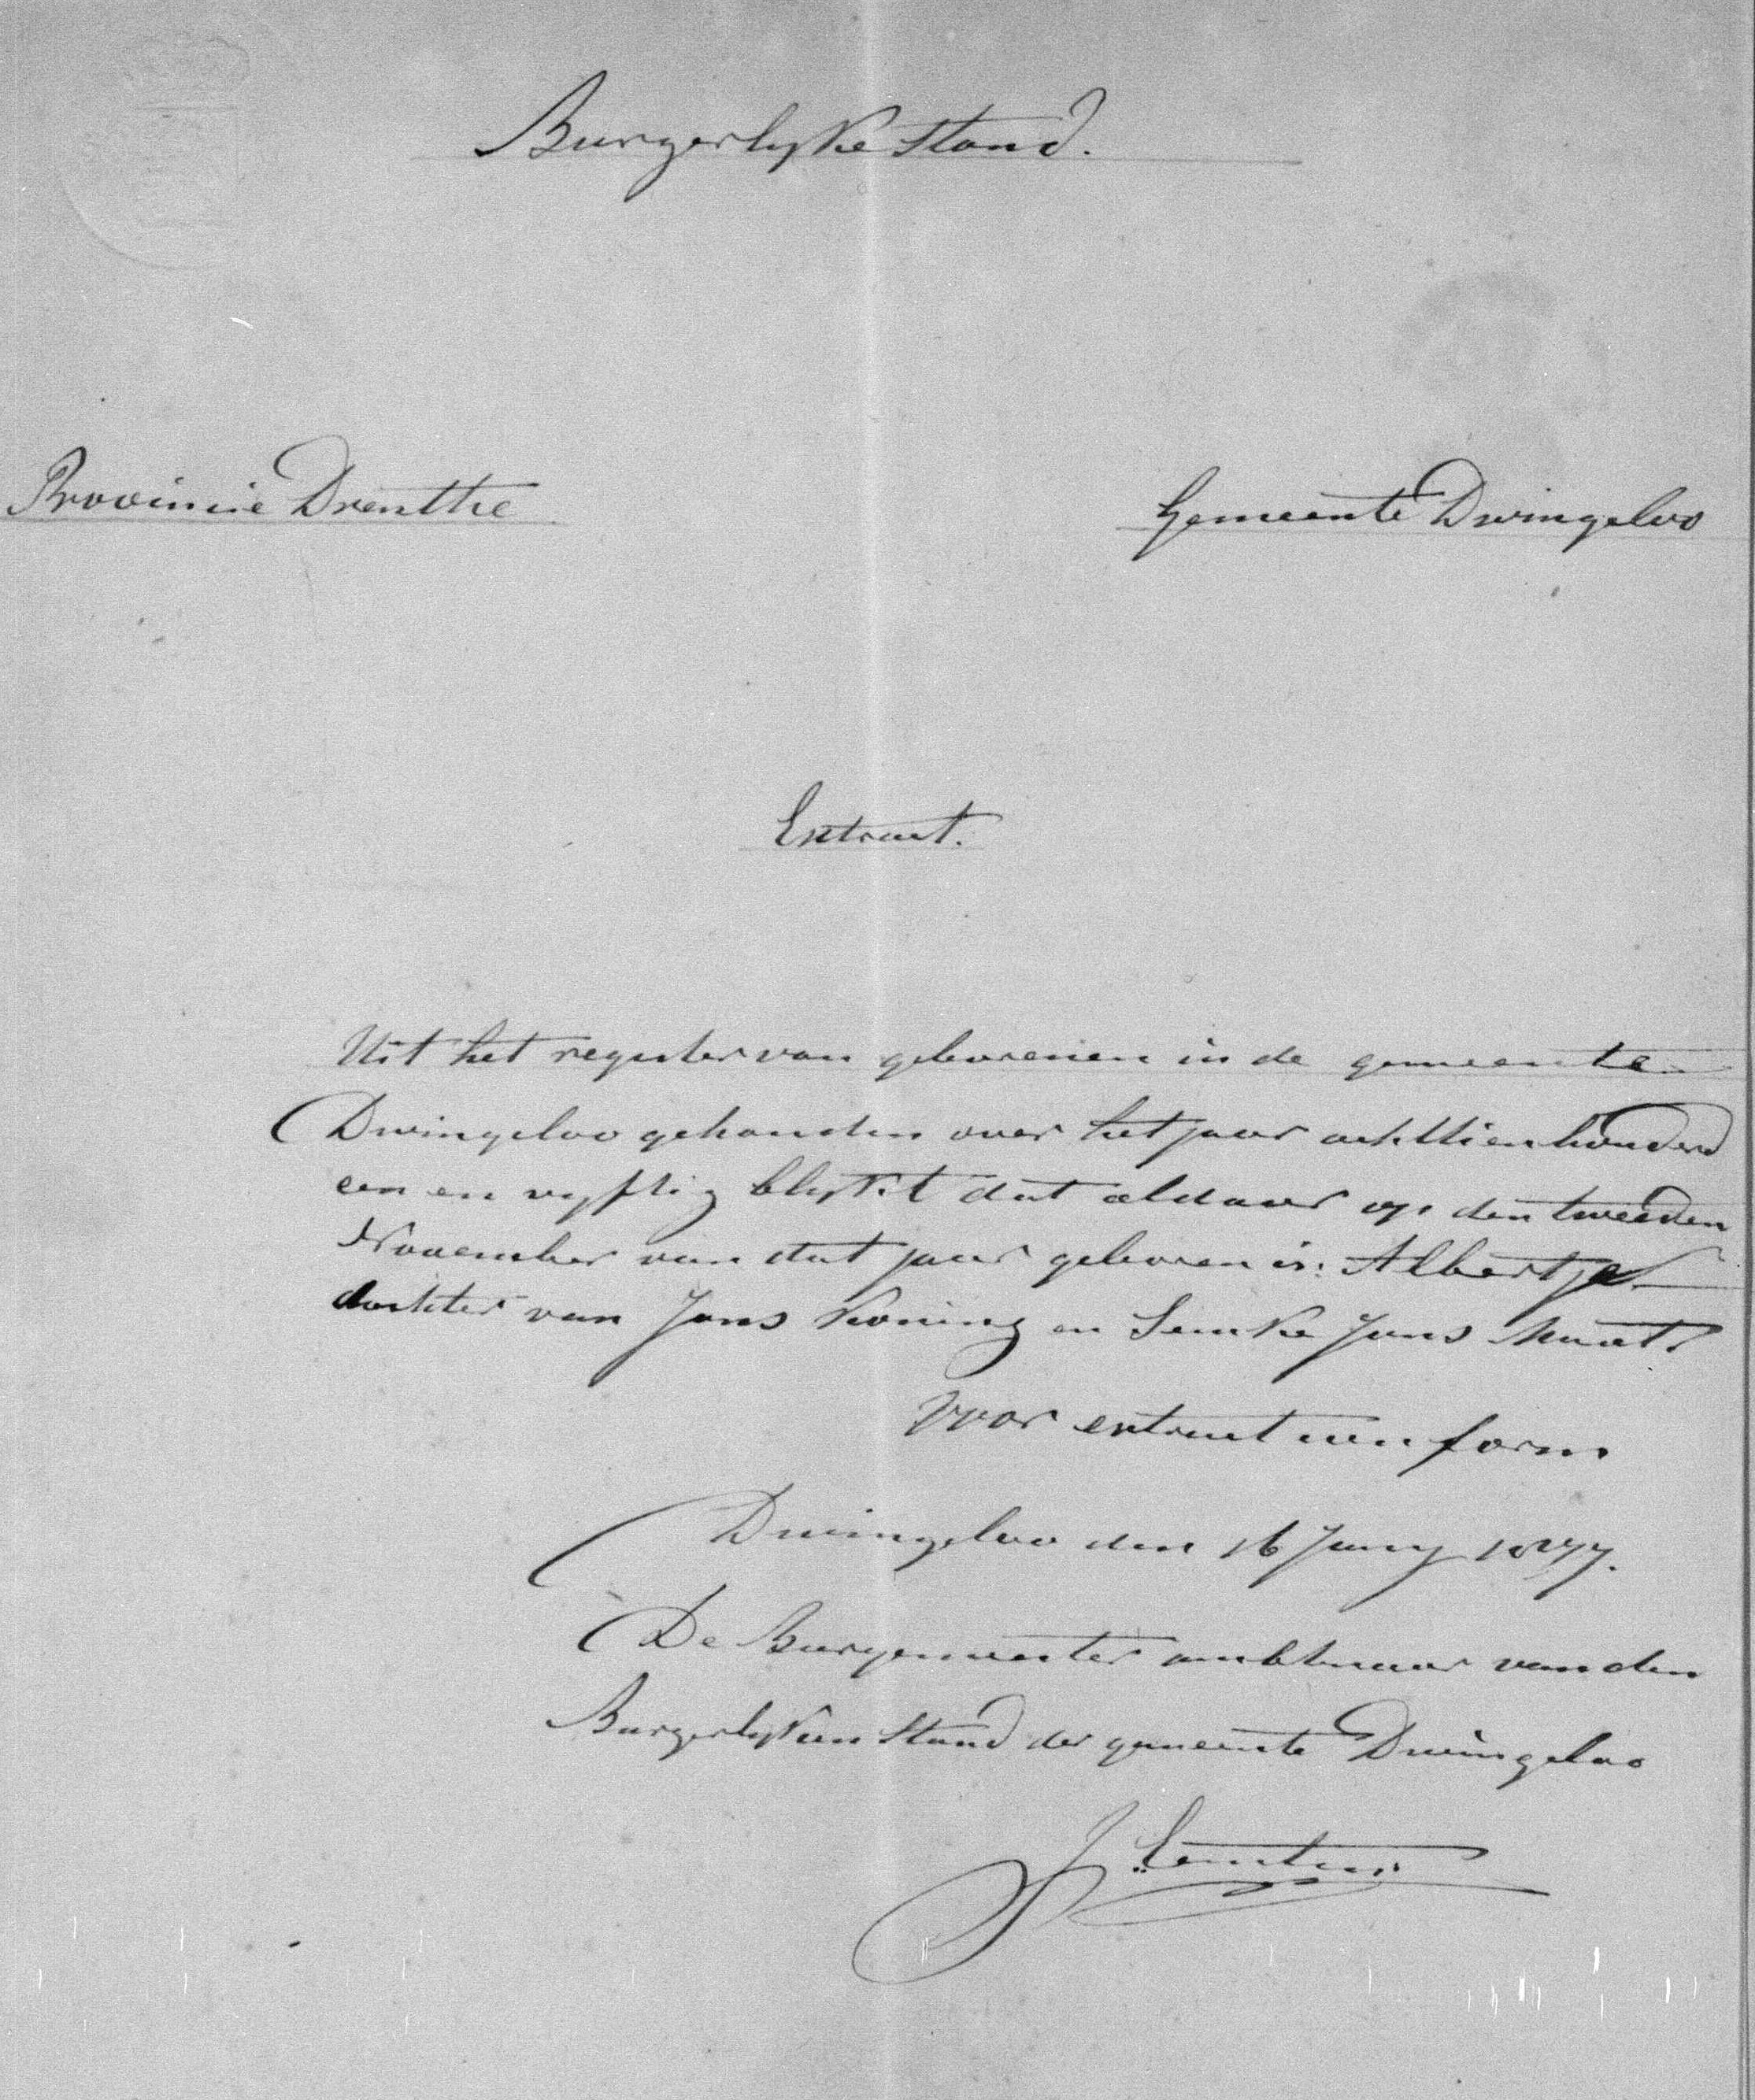 Burgerlyke Stand.
Provincie Drenthe
Gemeente Dwingeloo
Extract.
Uit het register van geborenen in de gemeente
Dwingeloo gehouden over het jaar achttienhonderd
een en vyftig blykt dat aldaar op den tweeden
November van dat jaar geboren is: Albertje
dochter van Jans Koning en Jans
Voor extract conform
Dwingeloo den 16 Juny 1877.
De Burgemeester ambtenaar van den
Burgerlyken Stand der gemeente Dwingeloo